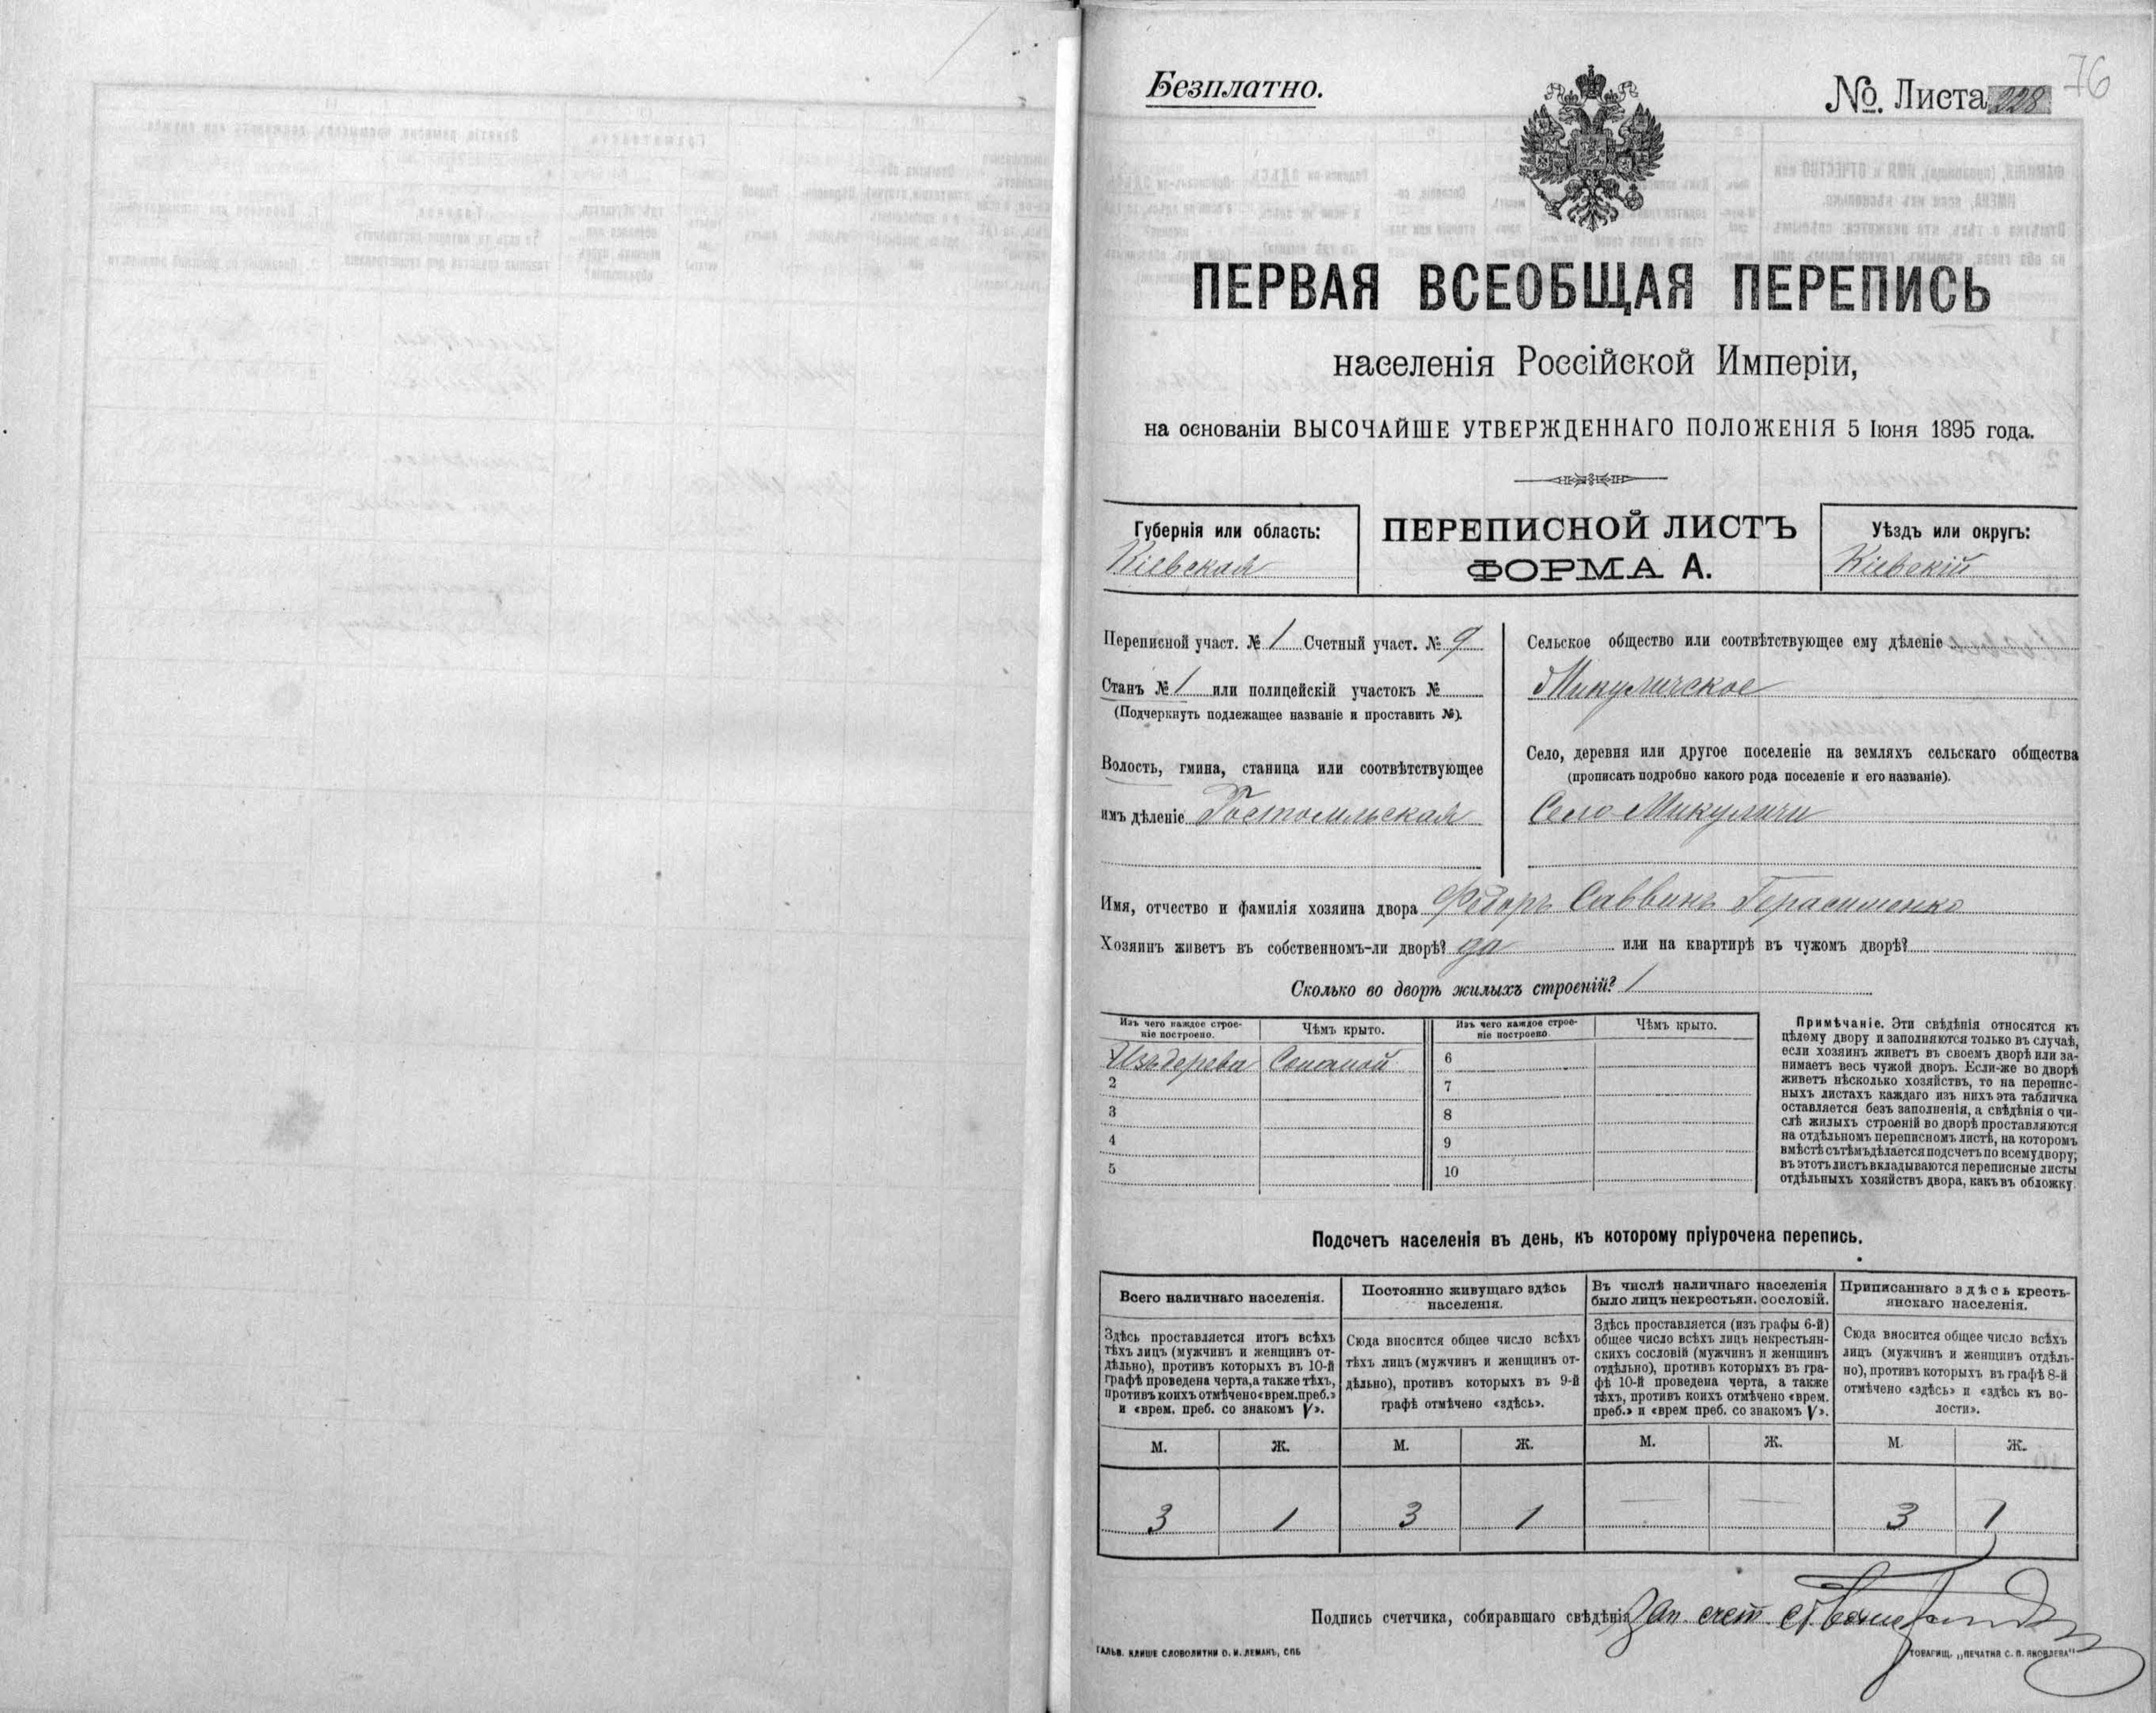 76
Безплатно.
№ Листа 228
ПЕРВАЯ ВСЕОБЩАЯ ПЕРЕПИСЬ
населенія Россійской Имперіи,
на основаніи ВЫСОЧАЙШЕ УТВЕРЖДЕННАГО ПОЛОЖЕНІЯ 5 Іюня 1895 года.
Губернія или область:
Кіевская
ПЕРЕПИСНОЙ ЛИСТЪ
ФОРМА А.
Уѣздъ или округъ:
Кіевскій
Переписной участ. № 1 Счетный участ. № 9
Станъ № 1 или полицейскій участокъ №
(Подчеркнуть подлежащее названіе и проставить №).
Волость, гмина, станица или соотвѣтствующее
имъ дѣленіе Гостомльская
Сельское общество или соотвѣтствующее ему дѣленіе
Микуличское
Село, деревня или другое поселеніе на земляхъ сельскаго общества
(прописать подробно какого рода поселеніе и его названіе).
Село Микуличи
Имя, отчество и фамилія хозяина двора Федоръ Саввинъ Герасименко
Хозяинъ живетъ въ собственномъ-ли дворѣ? да или на квартирѣ въ чужомъ дворѣ?
Сколько во дворѣ жилыхъ строеній? 1
Изъ чего каждое строе-
ніе построено.
Чѣмъ крыто.
Изъ чего каждое строе-
ніе построено.
Чѣмъ крыто.
Изъ дерева Соломой
6
2
7
3
8
4
9
5
10
Примѣчаніе. Эти свѣдѣнія относятся къ
цѣлому двору и заполняются только въ случаѣ,
если хозяинъ живетъ въ своемъ дворѣ или за-
нимаетъ весь чужой дворъ. Если-же во дворѣ
живетъ нѣсколько хозяйствъ, то на перепис-
ныхъ листахъ каждаго изъ нихъ эта табличка
оставляется безъ заполненія, а свѣдѣнія о чи-
слѣ жилыхъ строеній во дворѣ проставляются
на отдѣльномъ переписномъ листѣ, на которомъ
вмѣстѣ съ тѣмъ дѣлается подсчетъ по всему двору;
въ этотъ листъ вкладываются переписные листы
отдѣльныхъ хозяйствъ двора, какъ въ обложку.
Подсчетъ населенія въ день, къ которому пріурочена перепись.
Всего наличнаго населенія.
Постоянно живущаго здѣсь
населенія.
Въ числѣ наличнаго населенія
было лицъ некрестьян. сословій.
Приписаннаго здѣсь кресть-
янскаго населенія.
Здѣсь проставляется итогъ всѣхъ
тѣхъ лицъ (мужчинъ и женщинъ от-
дѣльно), противъ которыхъ въ 10-й
графѣ проведена черта, а также тѣхъ,
противъ коихъ отмѣчено «врем. преб.»
и «врем. преб. со знакомъ V».
Сюда вносится общее число всѣхъ
тѣхъ лицъ (мужчинъ и женщинъ от-
дѣльно), противъ которыхъ въ 9-й
графѣ отмѣчено «здѣсь».
Здѣсь проставляется (изъ графы 6-й)
общее число всѣхъ лицъ некрестьян-
скихъ сословій (мужчинъ и женщинъ
отдѣльно), противъ которыхъ въ гра-
фѣ 10-й проведена черта, а также
тѣхъ, противъ коихъ отмѣчено «врем.
преб.» и «врем преб. со знакомъ V».
Сюда вносится общее число всѣхъ
лицъ (мужчинъ и женщинъ отдѣль-
но), противъ которыхъ въ графѣ 8-й
отмѣчено «здѣсь» и «здѣсь къ во-
лости».
М. Ж. М. Ж. М. Ж. М. Ж.
3 1 3 1 — — 3 1
Подпись счетчика, собиравшаго свѣдѣнія Зап. счет.
ГАЛЬВ. КЛИШЕ СЛОВОЛИТНИ О. И. ЛЕМАНЪ, СПБ
ТОВАРИЩ. „ПЕЧАТНЯ С. П. ЯКОВЛЕВА"